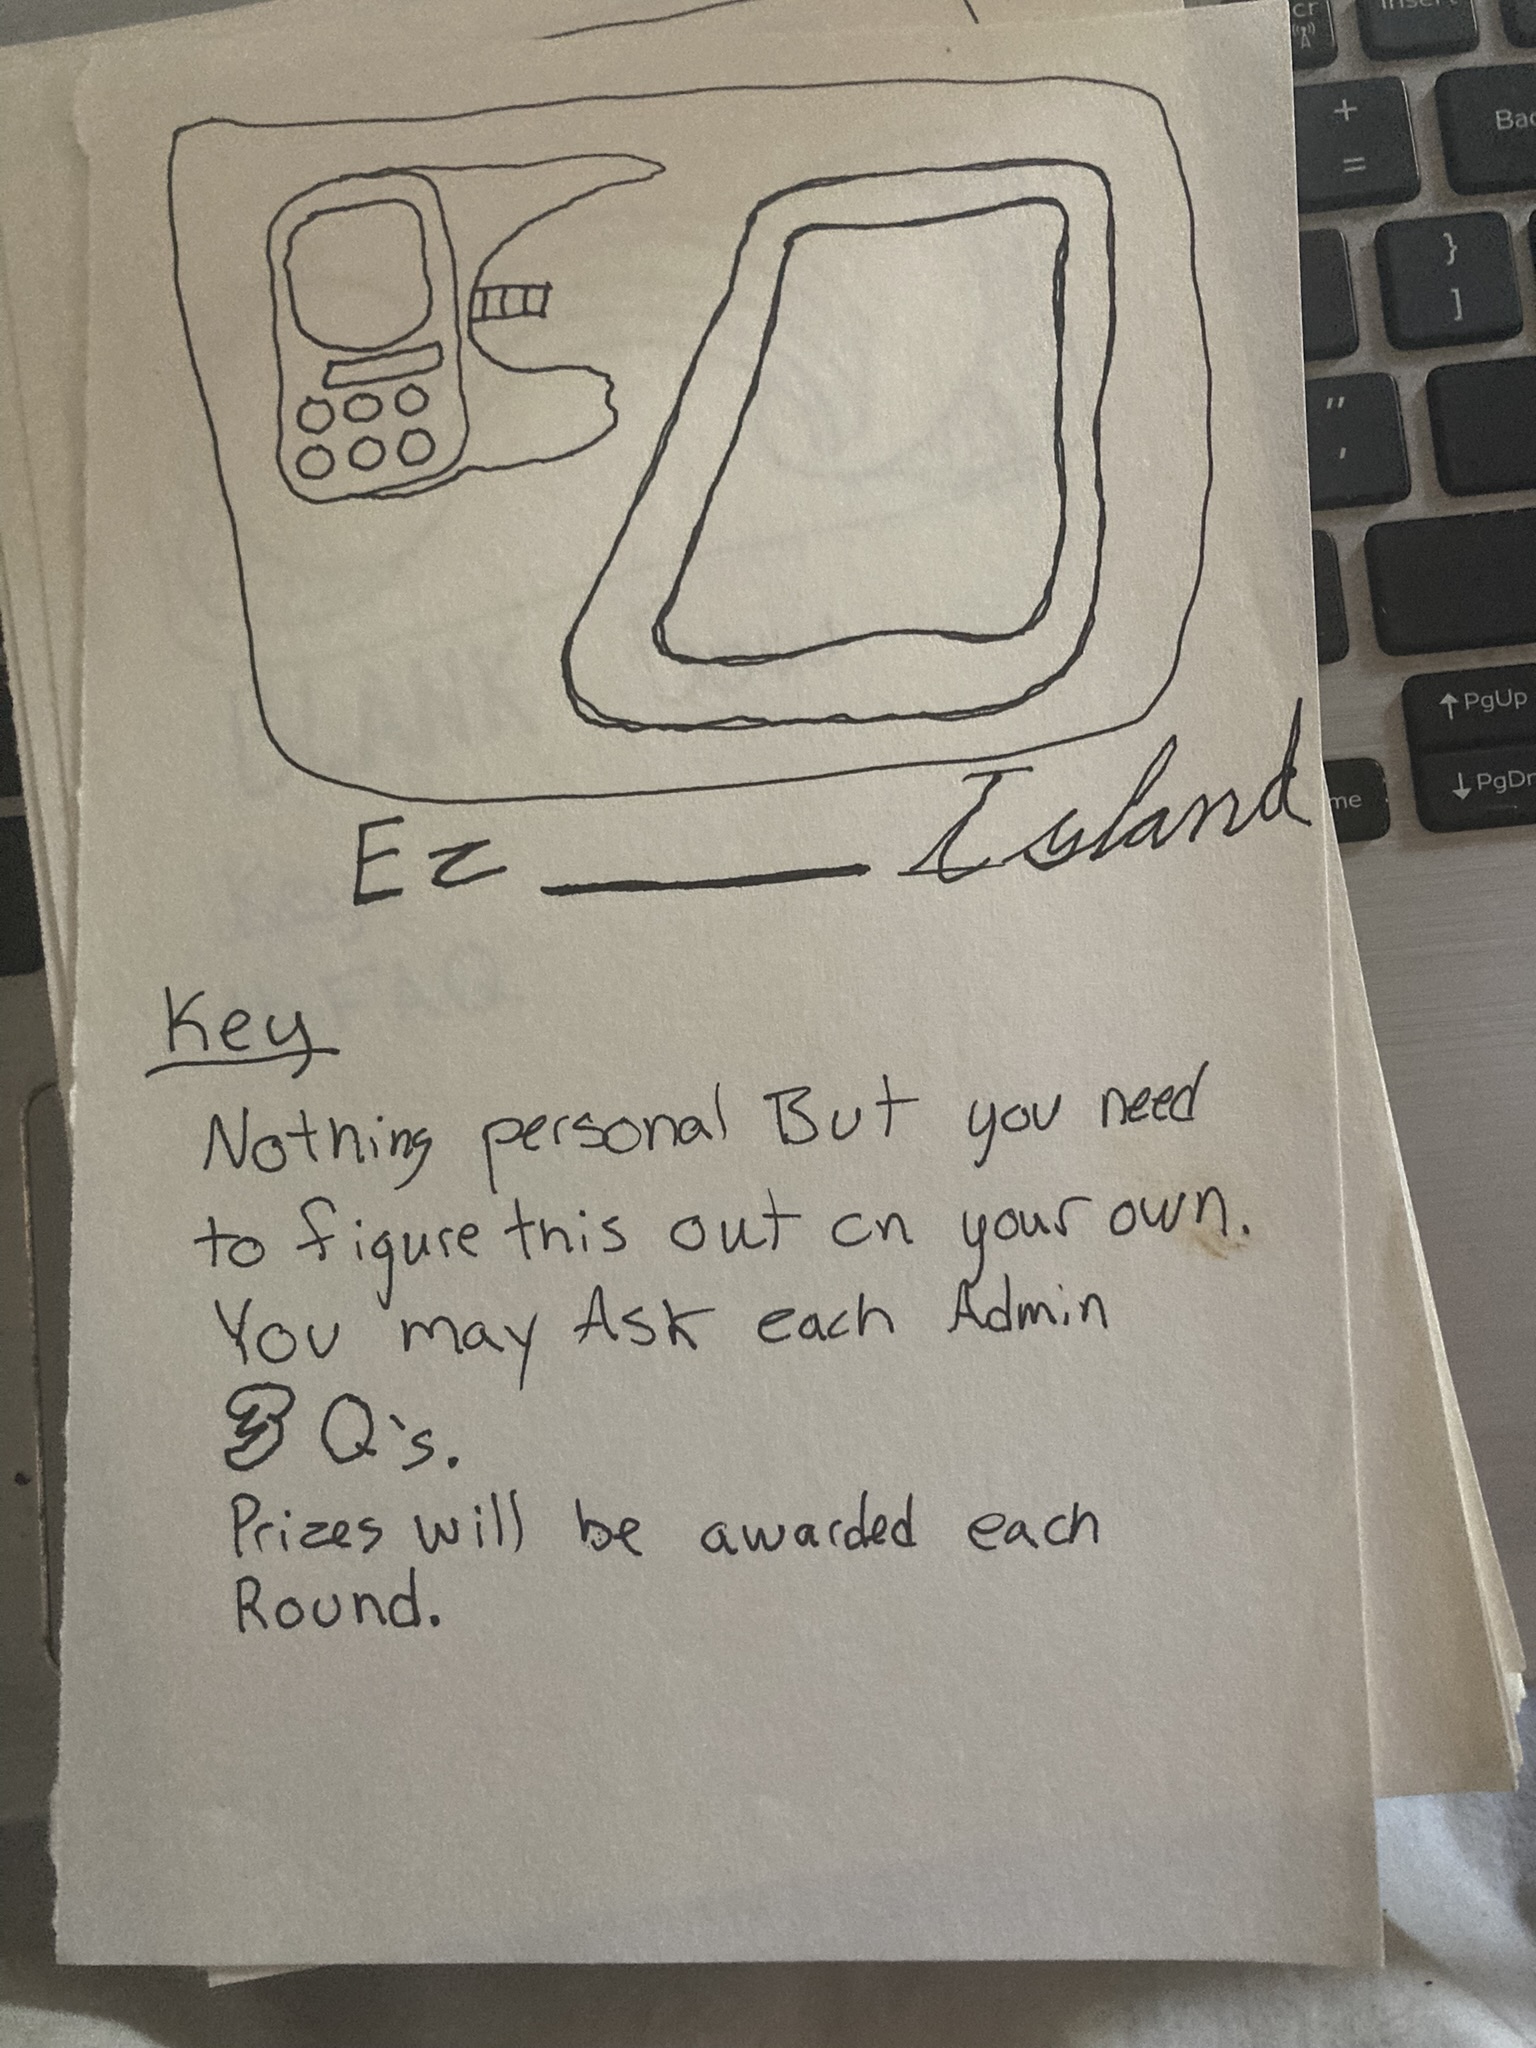 Ez ______ Island
Key
Nothing personal But you need
to figure this out on your own.
You may Ask each Admin
3 Q's.
Prizes will be awarded each
Round.
+
=
}
]
"
,
↑ PgUp